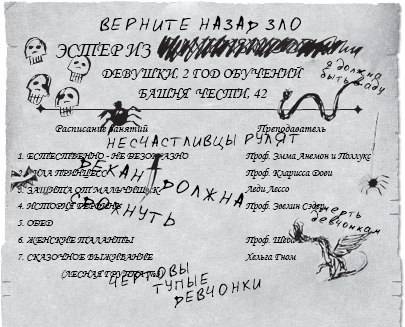 ВЕРНИТЕ НАЗАД ЗЛО
ЭСТЕР ИЗ
Я ДОЛЖНА
БЫТЬ В АДУ
ДЕВУШКИ, 2 ГОД ОБУЧЕНИЙ
БАШНЯ ЧЕСТИ, 42
Расписание занятий Преподаватель
НЕСЧАСТЛИВЦЫ РУЛЯТ
1. ЕСТЕСТВЕННО - НЕ БЕЗОБРАЗНО Проф. Эмма Анемон и Поллукс
ДЕКАНА ДОЛЖНА
СДОХНУТЬ
ПРИНЦЕСС Проф. Кларисса Дови
3. ЗАЩИТА ОТ МАЛЬЧИШЕК Леди Лессо
4. ИСТОРИЯ Проф. Эвелин Сэдер
5. ОБЕД
смерть
девчонкам
6. ЖЕНСКИЕ ТАЛАНТЫ Проф.
7. СКАЗОЧНОЕ ВЫЖИВАНИЕ Хельга Гном
(ЛЕСНАЯ ГРУППА
ЧЕРТОВЫ
ТУПЫЕ
ДЕВЧОНКИ